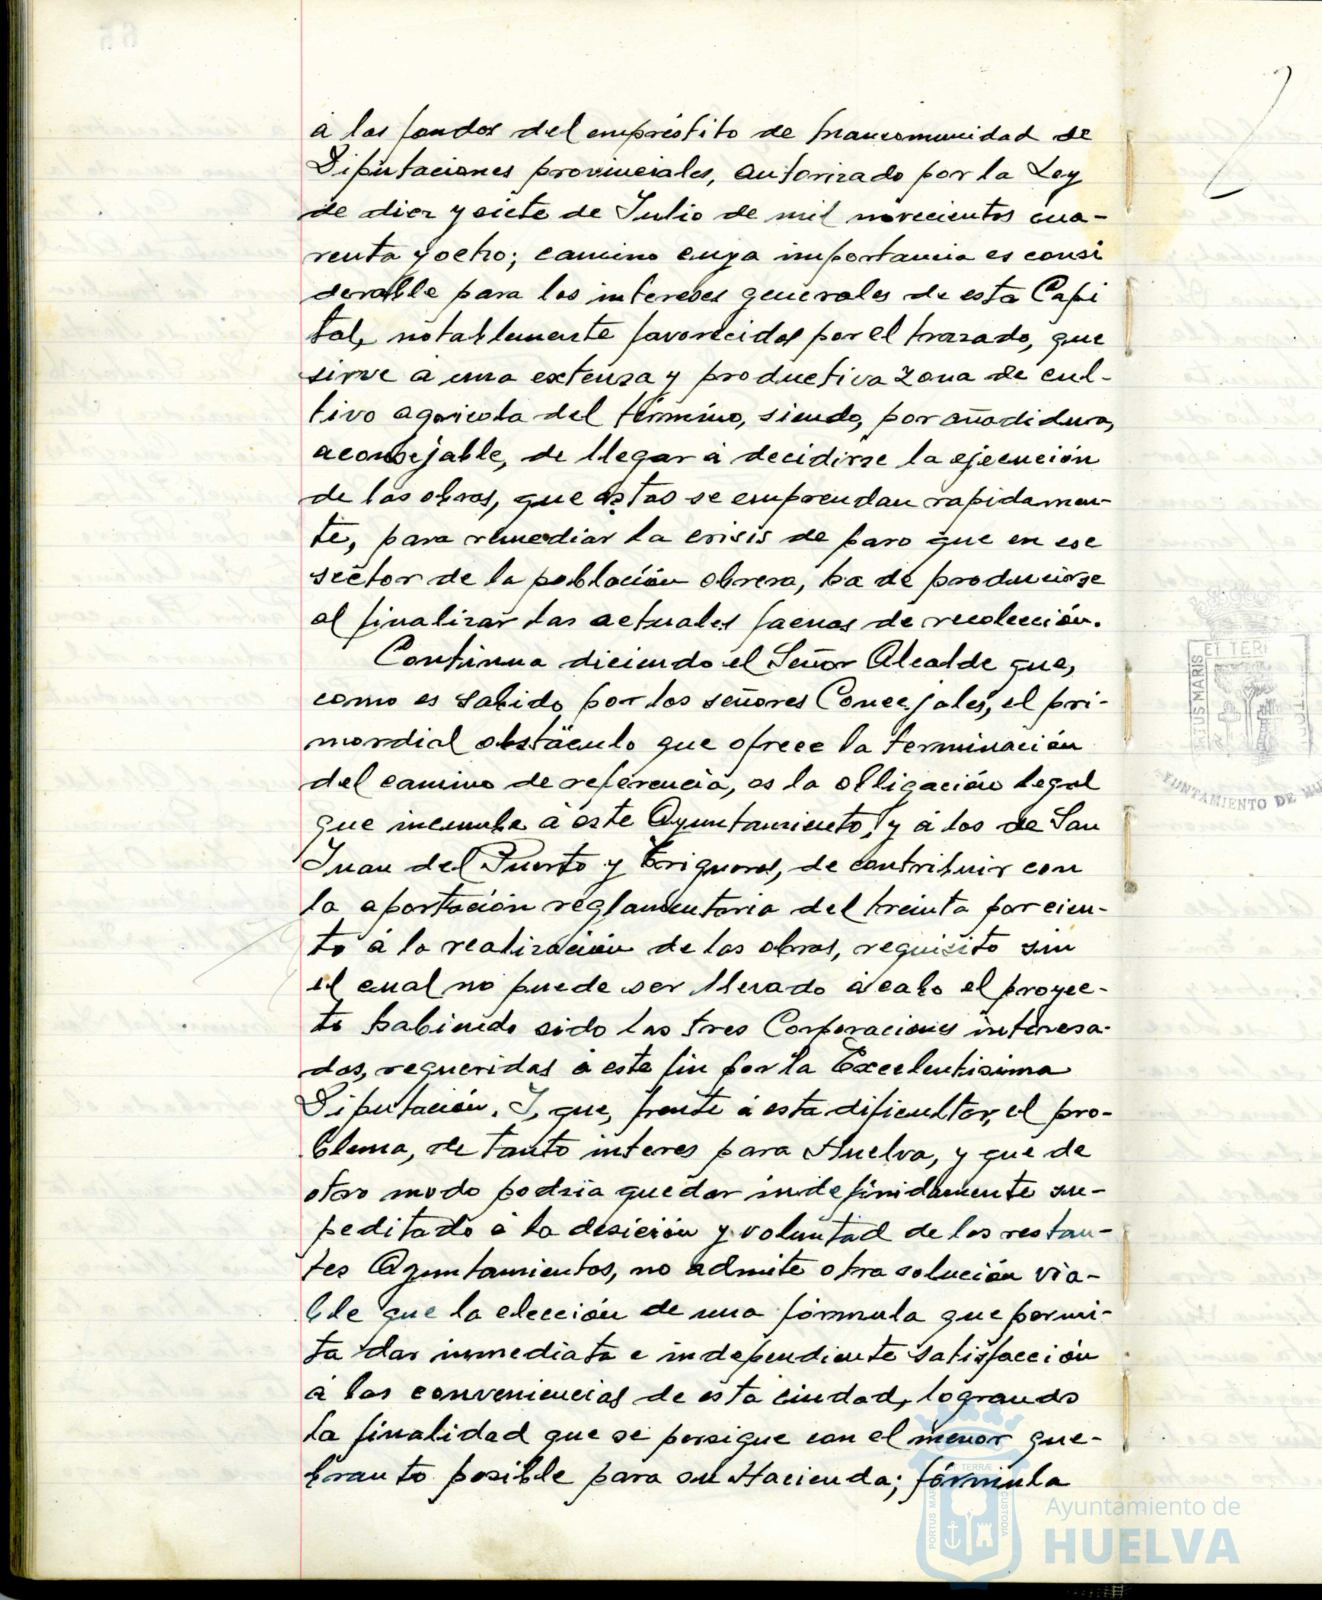 á los fondos del empréstito de mancomunidad de
Diputaciones provinciales, autorizado por la Ley
de diez y siete de Julio de mil novecientos cua-
renta y ocho; camino cuya importancia es consi
derable para los intereses generales de esta Capi
tal, notablemente favorecidos por el trazado, que
sirve á una extensa y productiva zona de cul-
tivo agricola del término, siendo, por añadidura,
aconsejable, de llegar á decidirse la ejecución
de las obras, que estas se emprendan rapidamen-
te, para remediar la crisis de paro que en ese
sector de la población obrera, ha de producirse
al finalizar las actuales faenas de recolección.
Continua diciendo el Señor Alcalde que,
como es sabido por los señores Concejales, el pri-
mordial obstáculo que ofrece la terminación
del camino de referencia, es la obligación legal
que incumbe á este Ayuntamiento, y á los de San
Juan del Puerto y Trigueros, de contribuir con
la aportación reglamentaria del treinta por cien-
to á la realización de las obras, requisito sin
el cual no puede ser llevado á cabo el proyec-
to habiendo sido las tres Corporaciones interesa-
das, requeridas á este fin por la Excelentisima
Diputación. Y, que, frente á esta dificultar, el pro-
blema, de tanto interes para Huelva, y que de
otro modo podria quedar indefinidamente su-
peditado á la desición y voluntad de los restan-
tes Ayuntamientos, no admite otra solución via-
ble que la elección de una fórmula que permi-
ta dar inmediata e independiente satisfacción
á las conveniencias de esta ciudad, logrando
la finalidad que se persigue con el menor que-
branto posible para su Hacienda; fórmula
ET TERR
AYUNTAMIENTO DE HU
PORTUS MARIS ET TERRAE CUSTODIA
Ayuntamiento de
HUELVA